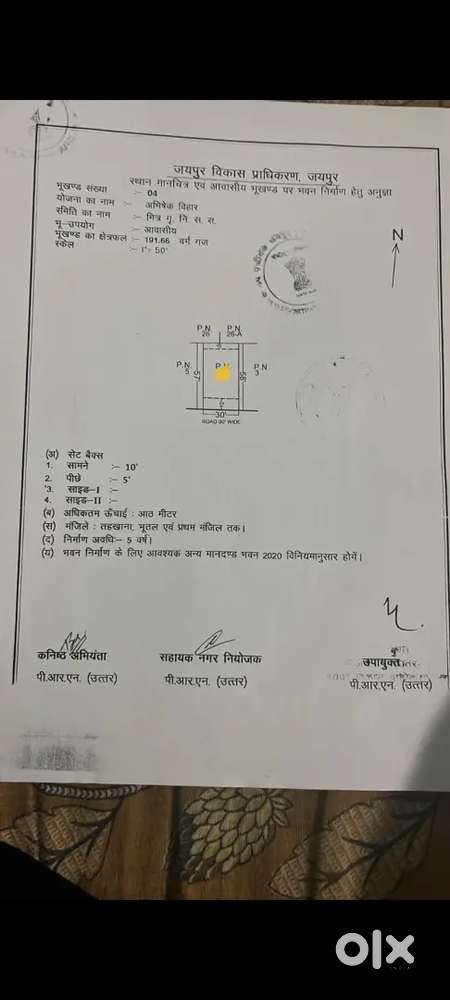 जयपुर विकास प्राधिकरण, जयपुर
स्थान मानचित्र एवं आवासीय भूखण्ड पर भवन निर्माण हेतु अनुज्ञा
भूखण्ड संख्या :- 04
योजना का नाम :- अभिषेक विहार
समिति का नाम :- मित्र गृ. नि. स. स.
भू-उपयोग :- आवासीय
भूखण्ड का क्षेत्रफल :- 191.66 वर्ग गज
स्केल :- 1"= 50'
N
P.N. 26
P.N. 26-A
P.N. 5
57'
P.N.
58'
P.N. 3
30'
ROAD 30' WIDE
(अ) सेट बैक्स
1. सामने :- 10'
2. पीछे :- 5'
3. साइड-I :-
4. साइड-II :-
(ब) अधिकतम ऊँचाई : आठ मीटर
(स) मंजिले : तहखाना, भूतल एवं प्रथम मंजिल तक।
(द) निर्माण अवधि:- 5 वर्ष।
(य) भवन निर्माण के लिए आवश्यक अन्य मानदण्ड भवन 2020 विनियमानुसार होगें।
कनिष्ठ अभियंता
पी.आर.एन. (उत्तर)
सहायक नगर नियोजक
पी.आर.एन. (उत्तर)
उपायुक्त
पी.आर.एन. (उत्तर)
olx
INDIA